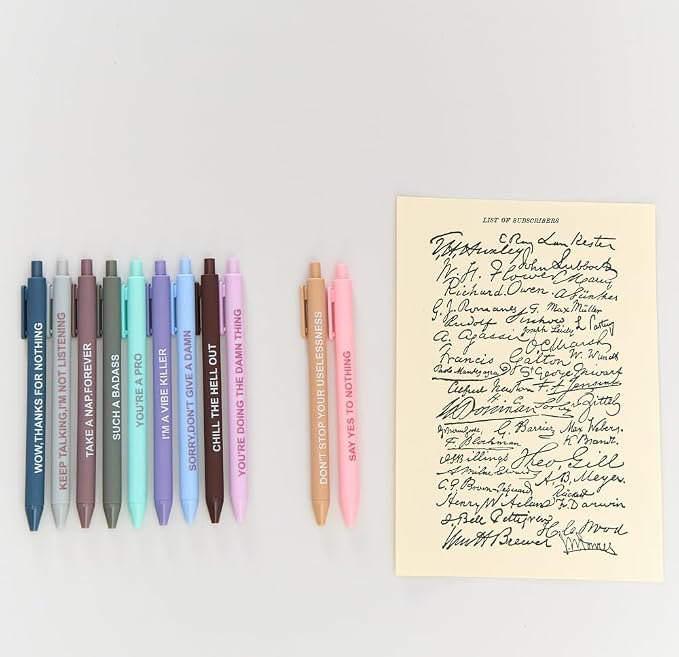 WOW,THANKS FOR NOTHING
KEEP TALKING,I'M NOT LISTENING
TAKE A NAP,FOREVER
SUCH A BADASS
YOU'RE A PRO
I'M A VIBE KILLER
SORRY,DON'T GIVE A DAMN
CHILL THE HELL OUT
YOU'RE DOING THE DAMN THING
DON'T STOP YOUR USELESSNESS
SAY YES TO NOTHING
LIST OF SUBSCRIBERS
E. Ray Lankester
Huxley
John Lubbock
W. H. Flower
Richard Owen. A. Günther
G. J. Romanes G. Max Müller
Rudolf Virchow
A. Agassiz
O. C. Marsh
Francis Galton W. Wundt
St George Mivart
Alfred Newton
Zittel
C. Barrois Max Weber.
F. Blochmann K. Brandt.
J S Billings Theo. Gill
A. B. Meyer.
Henry W Acland Fr. Darwin
J. Bell Pettigrew
H. C. Wood
Wm H Brewer